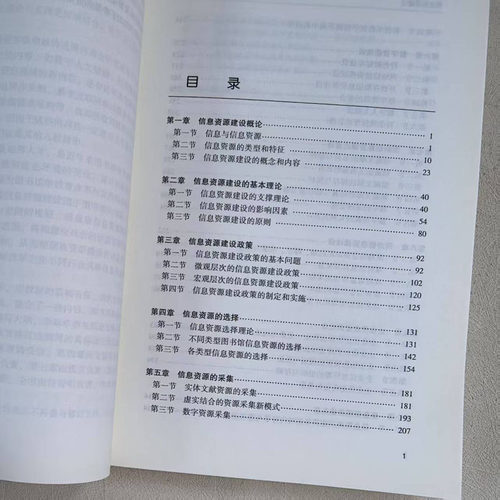 目 录
第一章 信息资源建设概论 1
第一节 信息与信息资源 1
第二节 信息资源的类型和特征 10
第三节 信息资源建设的概念和内容 23
第二章 信息资源建设的基本理论 40
第一节 信息资源建设的支撑理论 40
第二节 信息资源建设的影响因素 54
第三节 信息资源建设的原则 80
第三章 信息资源建设政策 92
第一节 信息资源建设政策的基本问题 92
第二节 微观层次的信息资源建设政策 102
第三节 宏观层次的信息资源建设政策 120
第四节 信息资源建设政策的制定和实施 125
第四章 信息资源的选择 131
第一节 信息资源选择理论 131
第二节 不同类型图书馆信息资源的选择 142
第三节 各类型信息资源的选择 154
第五章 信息资源的采集 181
第一节 实体文献资源的采集 181
第二节 虚实结合的资源采集新模式 193
第三节 数字资源采集 207
1